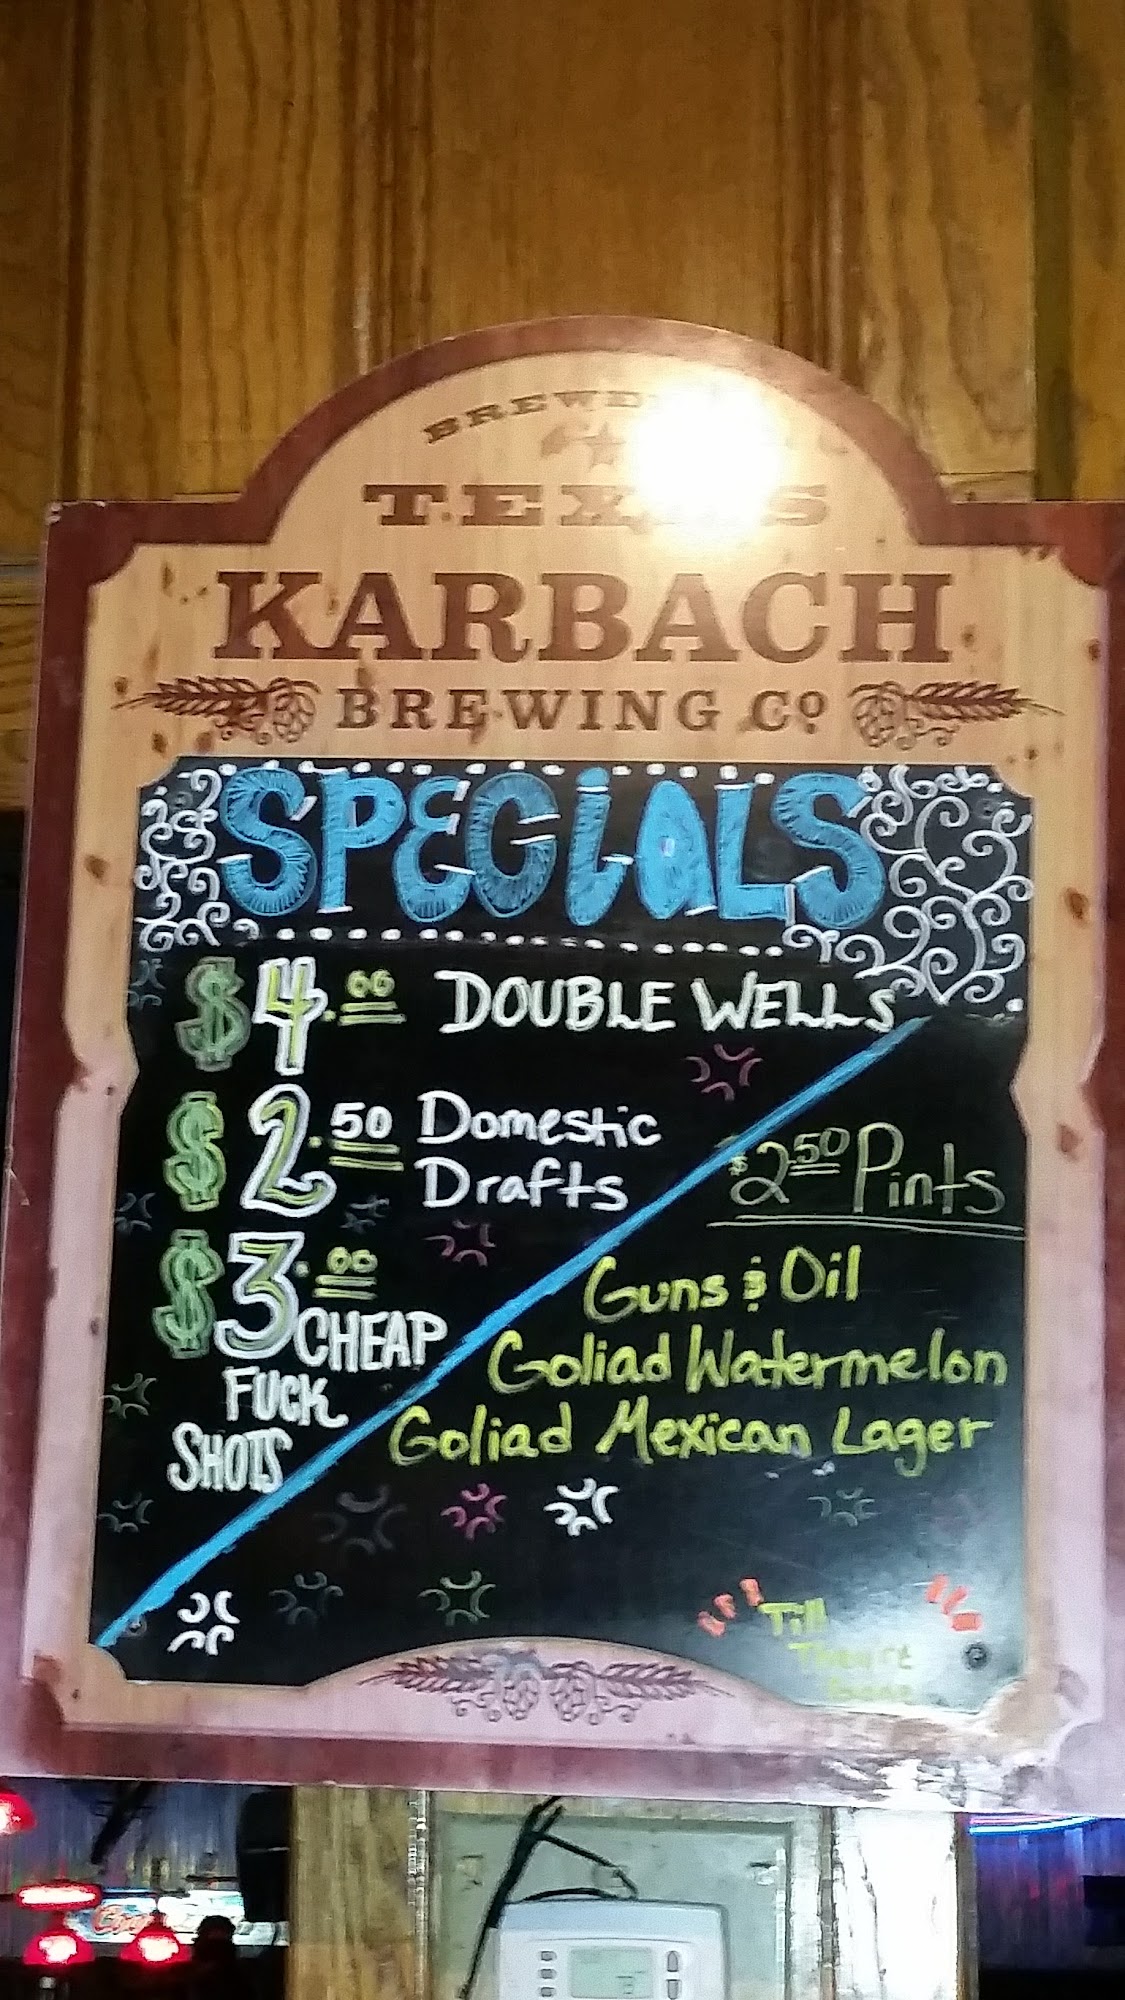 TEXAS
KARBACH
BREWING Cº
SPECIALS
$4.00 DOUBLE WELLS
$2.50 Domestic
Drafts
$3.00 CHEAP
FUCK
SHOTS
$2.50 Pints
Guns & Oil
Goliad Watermelon
Goliad Mexican Lager
Till
They're
Gone